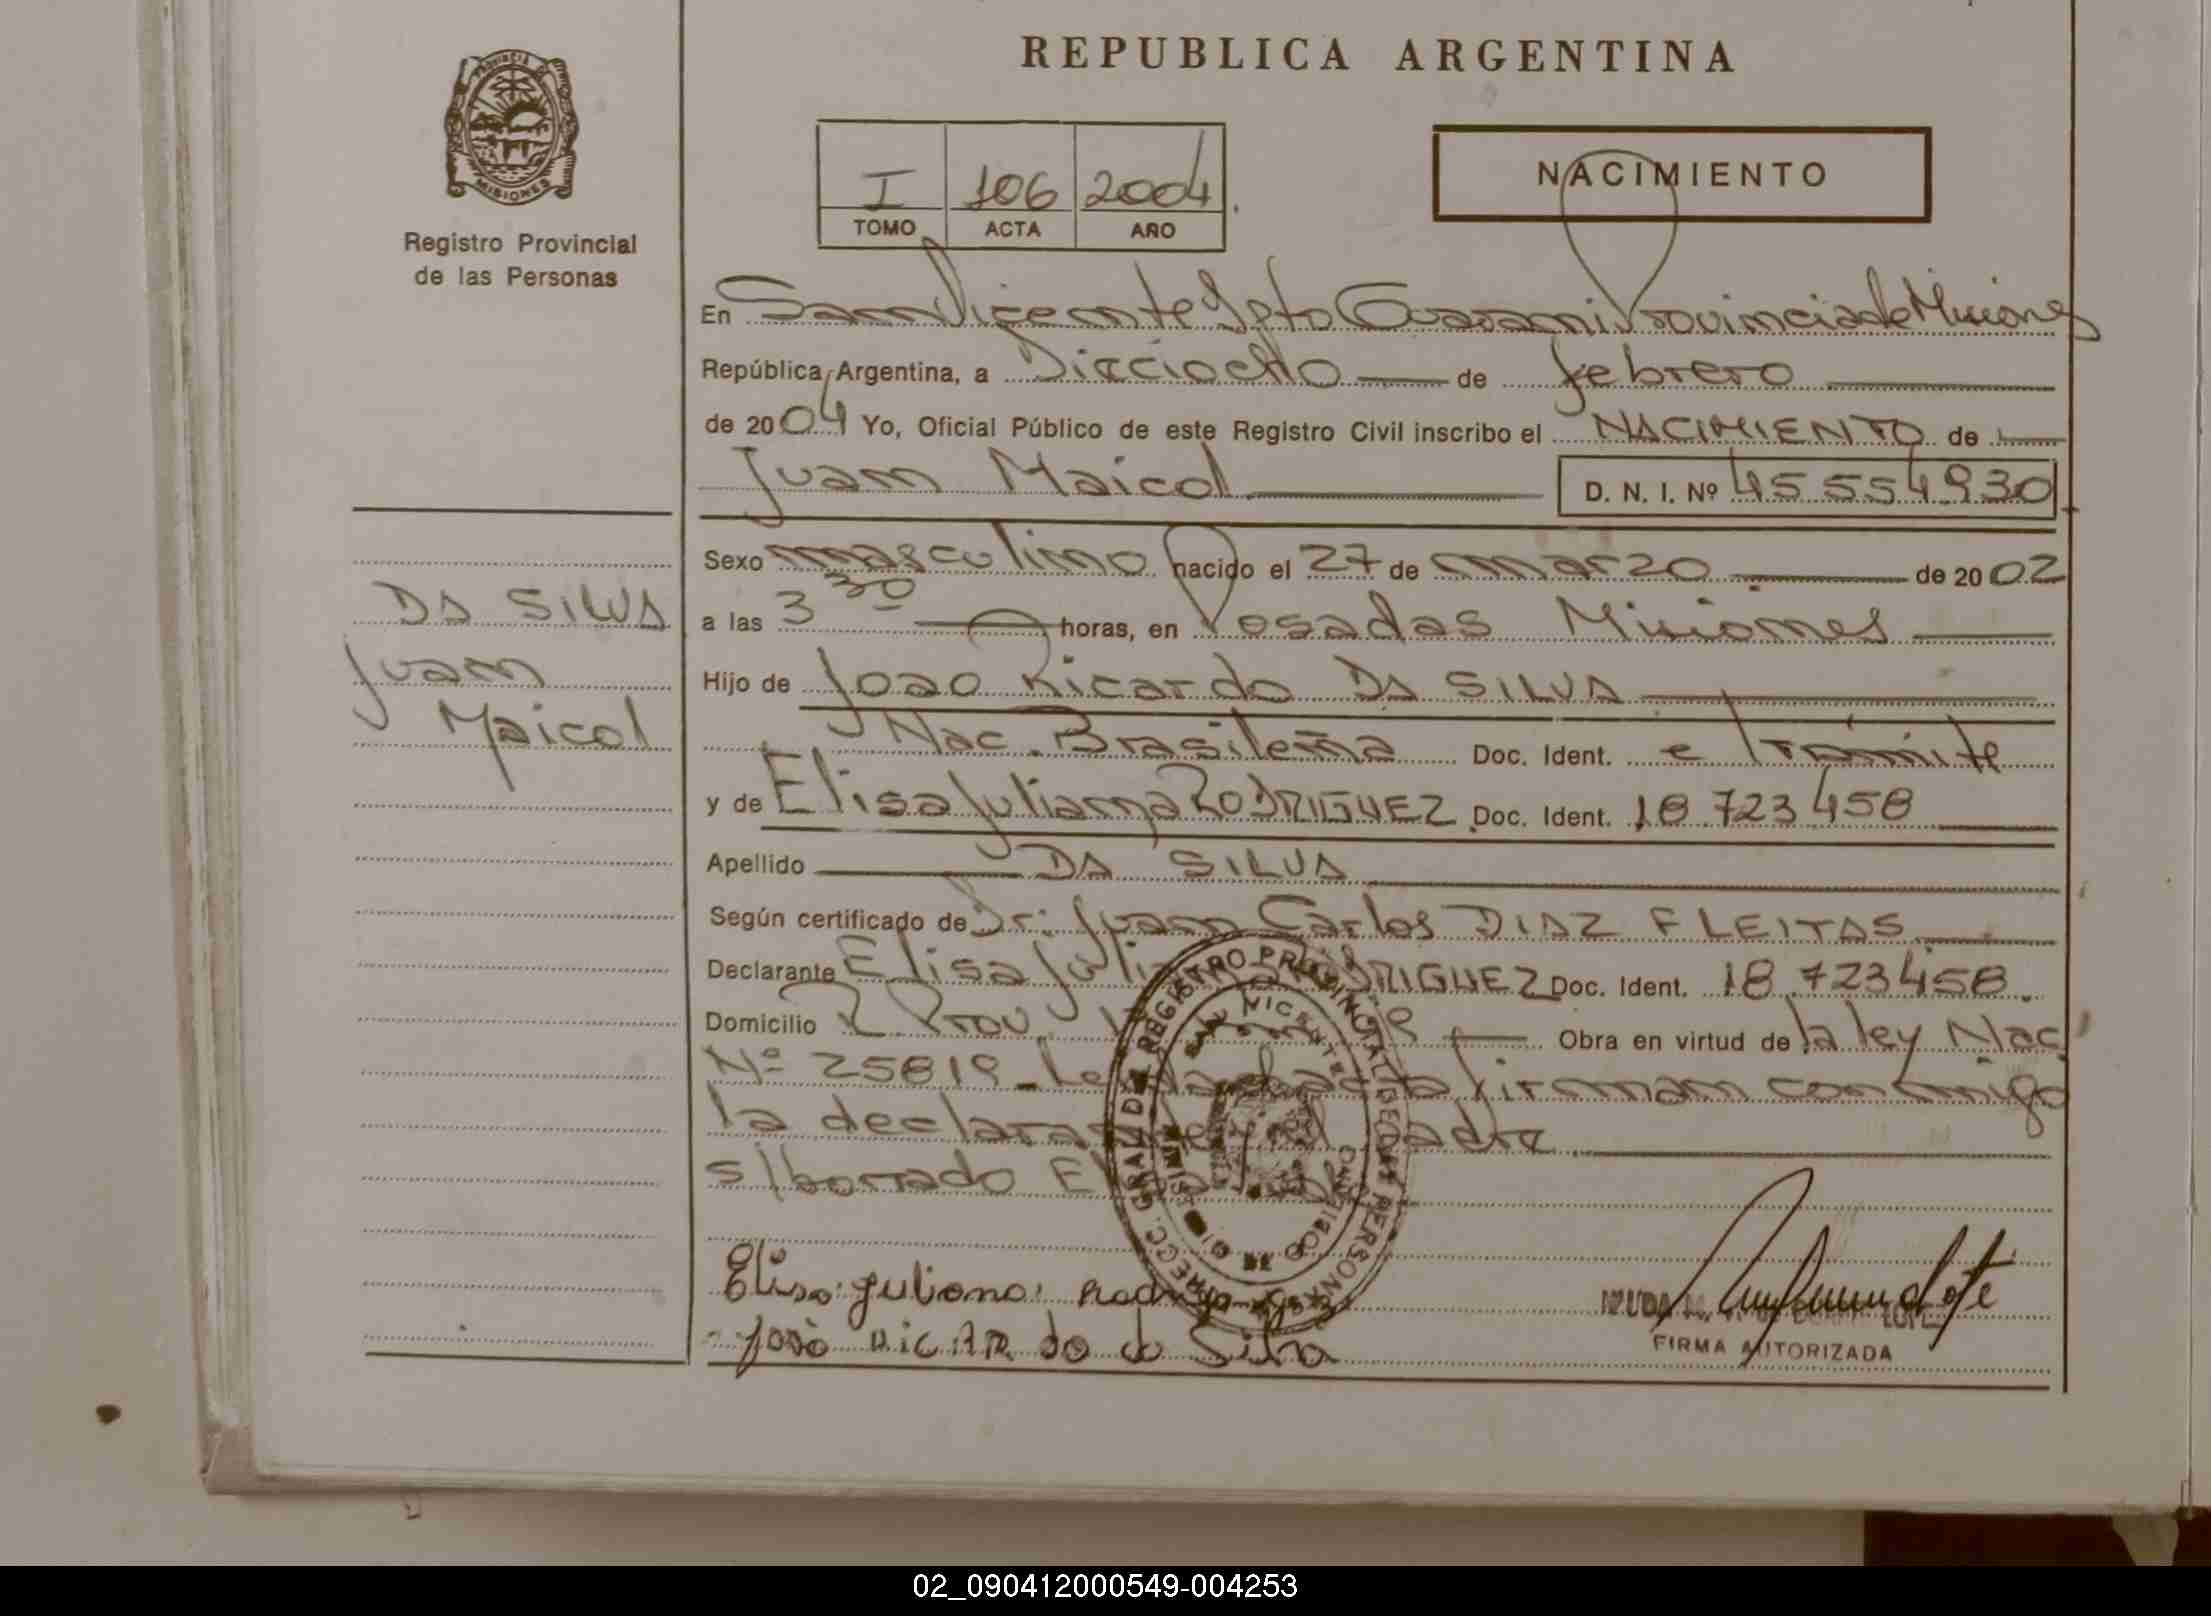 REPUBLICA ARGENTINA
PROVINCIA DE
MISIONES
Registro Provincial
de las Personas
I 106 2004
TOMO ACTA AÑO
NACIMIENTO
En San Vicente Dpto Guarani Provincia de Misiones
República Argentina, a Dieciocho de febrero
de 2004 Yo, Oficial Público de este Registro Civil inscribo el NACIMIENTO de
Juan Maicol D. N. I. Nº 45 554 930
Sexo masculino nacido el 27 de marzo de 2002
a las 3 30 horas, en Posadas Misiones
Hijo de Joao Ricardo DA SILVA
Nac. Brasileña Doc. Ident. e Trámite
y de Elisa Juliana RODRIGUEZ Doc. Ident. 18 723 458
Apellido DA SILVA
Según certificado de Dr: Juan Carlos DIAZ FLEITAS
Declarante Elisa Juliana RODRIGUEZ Doc. Ident. 18 723 458.
Domicilio Obra en virtud de la ley Nac.
Nº 25819 Leida el acta firman conmigo
la declarante y el padre
s/borrado
DA SILVA
Juan
Maicol
DIRECC. GRAL. DEL REGISTRO PROVINCIAL DE LAS PERSONAS
SAN VICENTE
Elisa Juliana Rodriguez
João RiCARdo da Silva
FIRMA AUTORIZADA
02_090412000549-004253